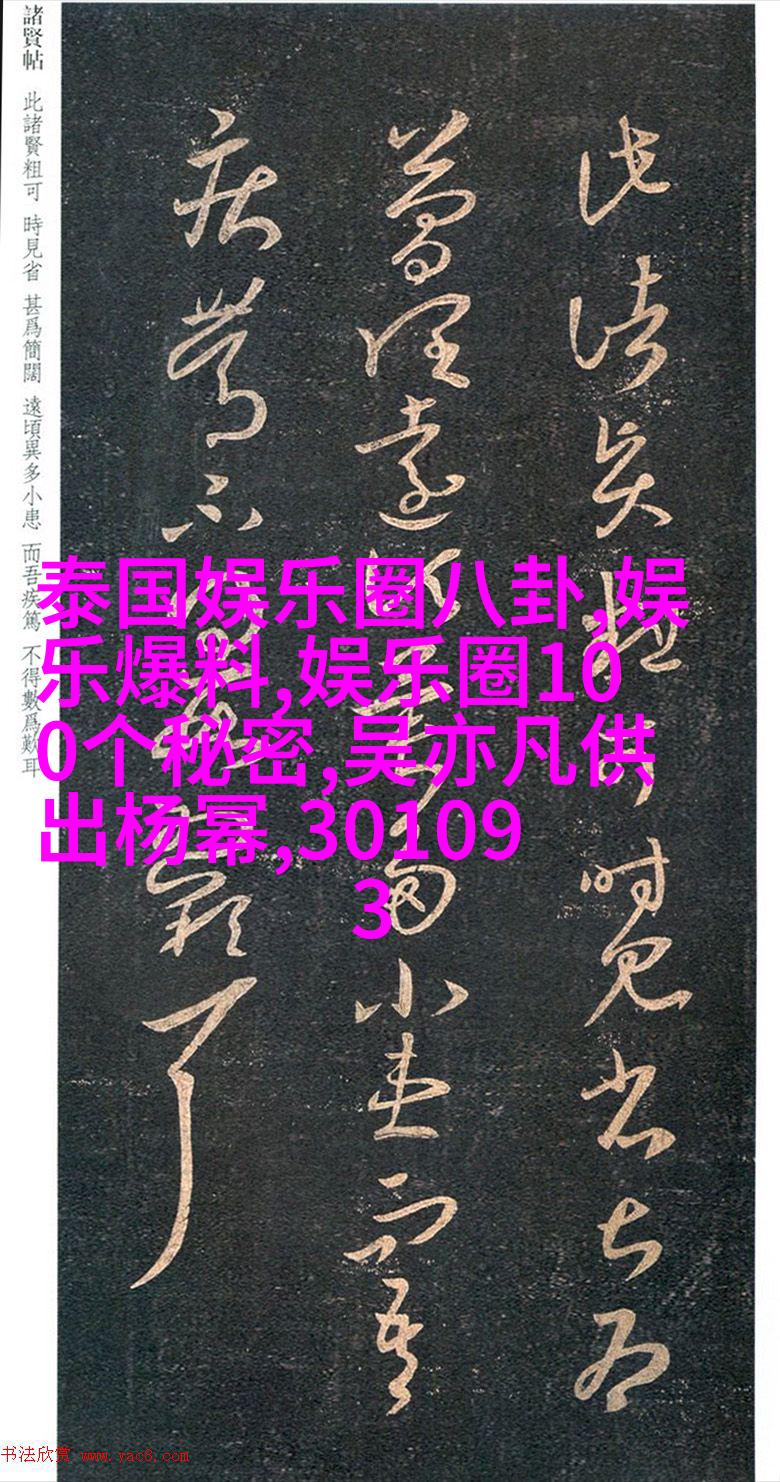 諸賢帖 此諸賢粗可 時見省 甚爲簡闊 遠頃異多小患 而吾疾篤 不得數爲歎耳
此諸賢粗可時見省甚爲
簡闊遠頃異多小患而吾
疾篤不得數爲歎耳
泰国娱乐圈八卦,娱
乐爆料,娱乐圈10
0个秘密,吴亦凡供
出杨幂,30109
3
书法欣赏 www.yac8.com